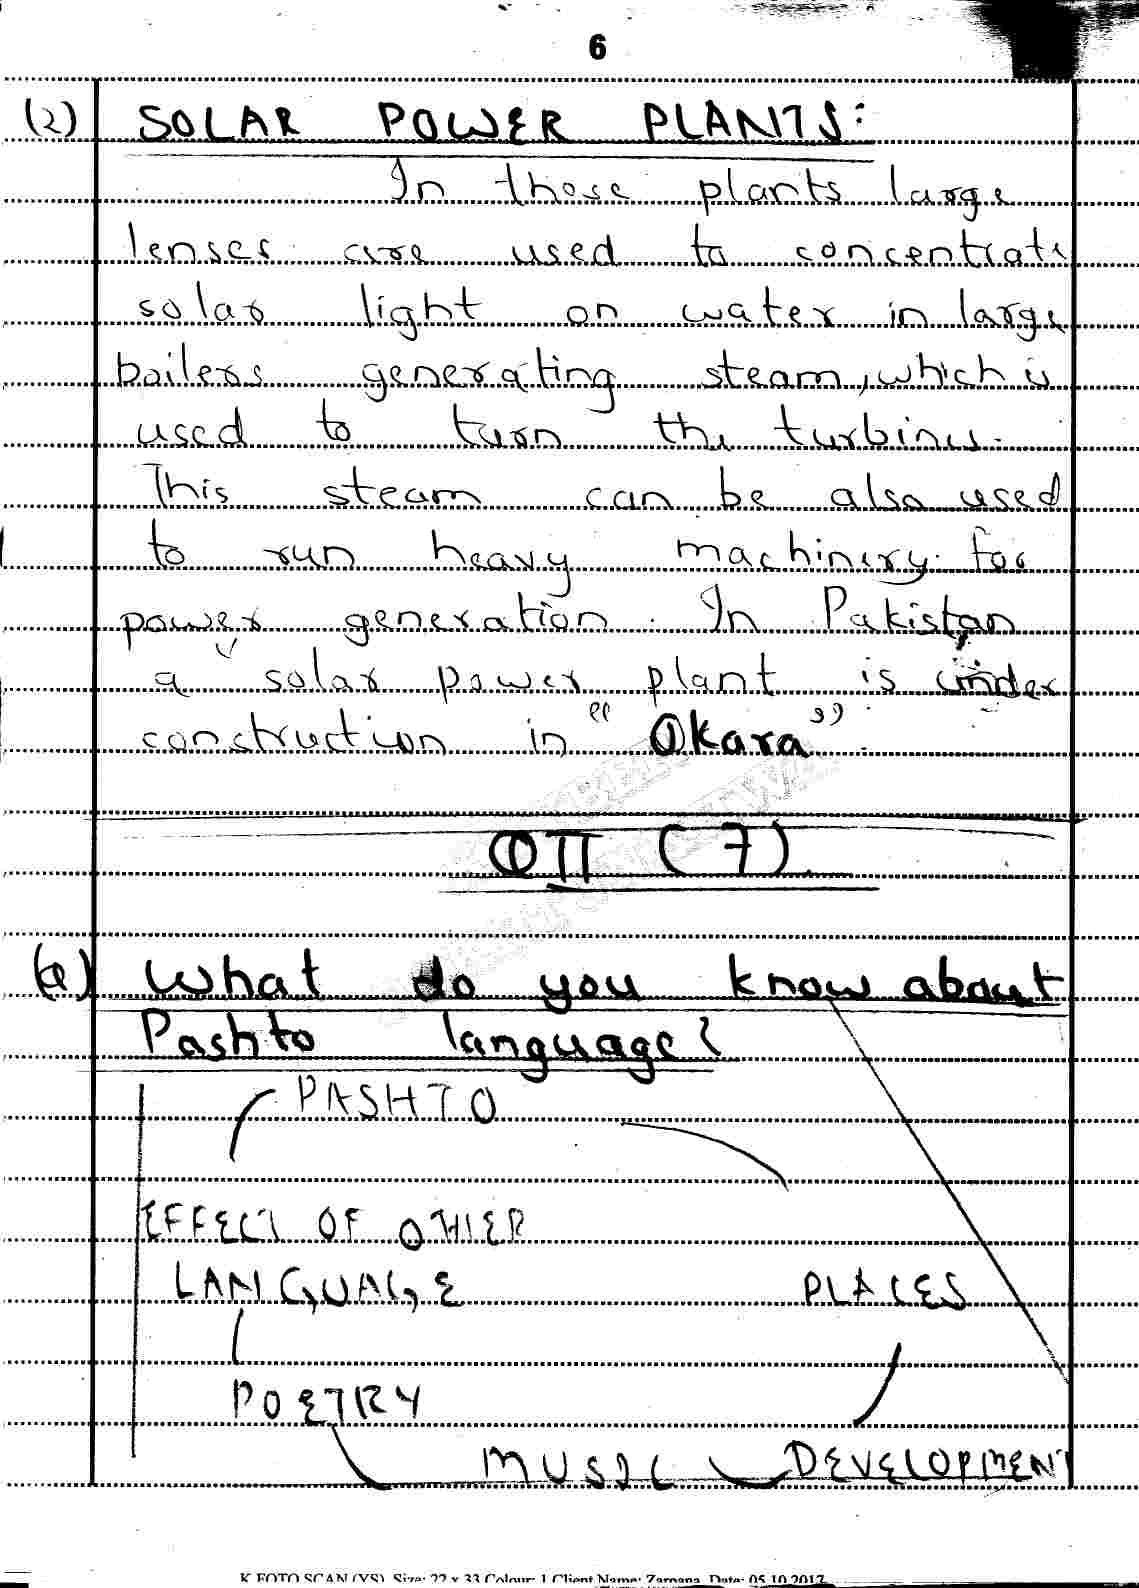 6
(2) SOLAR POWER PLANTS:
In these plants large
lenses are used to concentrate
solar light on water in large
boilers generating steam, which is
used to turn the turbines.
This steam can be also used
to run heavy machinery for
power generation. In Pakistan
a solar power plant is under
construction in "Okara".
QII (7)
(a) What do you know about
Pashto language?
PASHTO
EFFECT OF OTHER
LANGUAGE PLACES
POETRY
MUSIC DEVELOPMENT
K.FOTO SCAN (YS) Size: 22 x 33 Colour: 1 Client Name: Zarpana Date: 05.10.2017